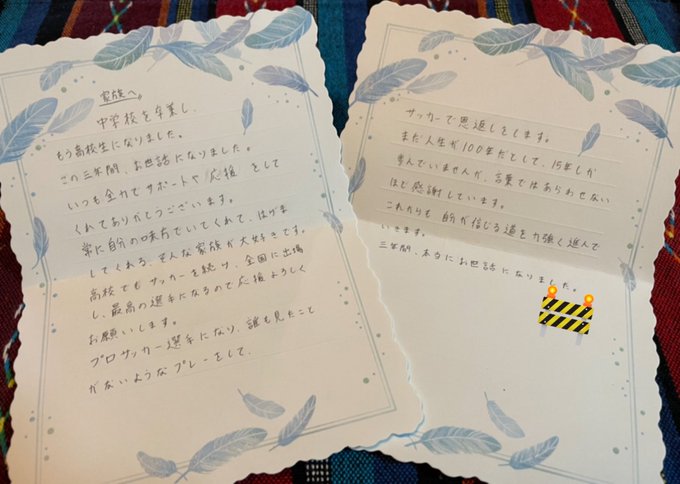 家族へ。
中学校を卒業し、
もう高校生になりました。
この三年間、お世話になりました。
いつも全力でサポートや応援をして
くれてありがとうございます。
常に自分の味方でいてくれて、はげま
してくれる、そんな家族が大好きです。
高校でもサッカーを続け、全国に出場
し、最高の選手になるので応援よろしく
お願いします。
プロサッカー選手になり、誰も見たこと
がないようなプレーをして、
サッカーで恩返しをします。
まだ人生が100年だとして、15年しか
歩んでいませんが、言葉ではあらわせない
ほど感謝しています。
これからも自分が信じる道を力強く進んで
いきます。
三年間、本当にお世話になりました。